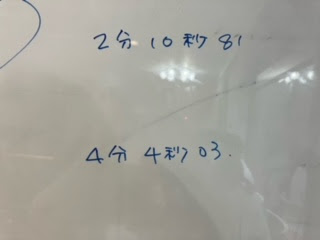 2分10秒81
4分4秒03.